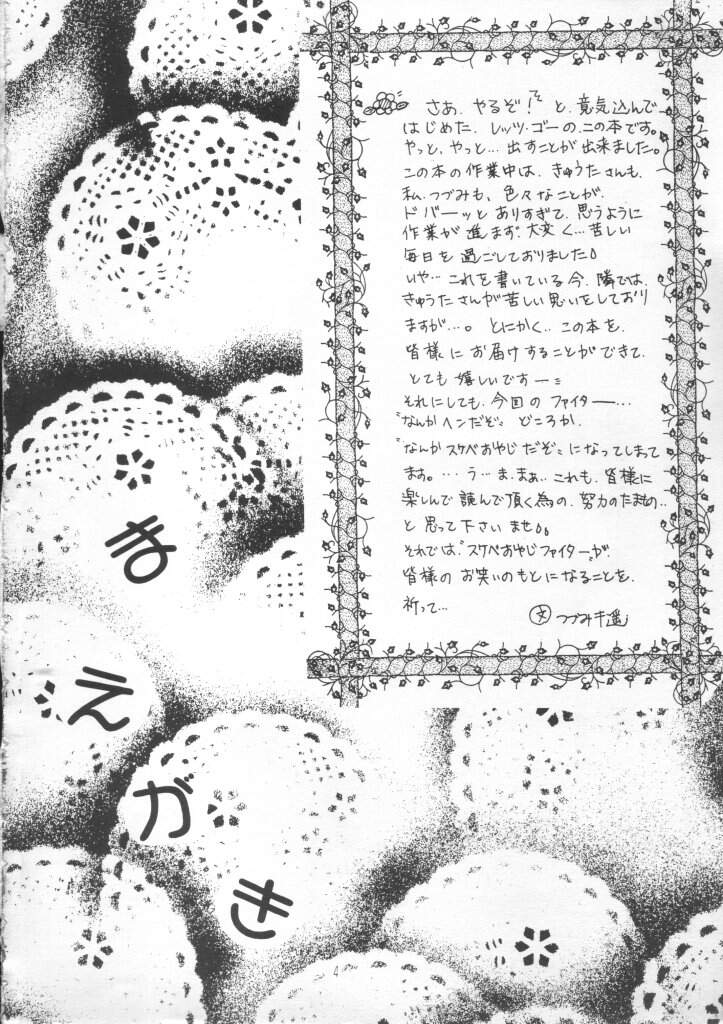 まえがき
さあ、やるぞ！と、意気込んで
はじめた、レッツ・ゴーの、この本です。
やっと、やっと…出すことが出来ました。
この本の作業中は、きゅうたさんも、
私、つづみも、色々なことが、
ドバーッとありすぎて、思うように
作業が進まず、大変く…苦しい
毎日を過ごしておりました。
いや…これを書いている今、隣では、
きゅうたさんが苦しい思いをしており
ますが…。とにかく、この本を、
皆様にお届けすることができて、
とても嬉しいですー
それにしても、今回のファイター…
"なんかヘンだぞ"どころか、
"なんかスケベおやじだぞ"になってしまって
ます。…う…ま、まぁ、これも、皆様に
楽しんで読んで頂く為の、努力のたまもの..
と思って下さいませ。
それでは、"スケベおやじファイター"が、
皆様のお笑いのもとになることを、
祈って…
文 つづみ千遥
4